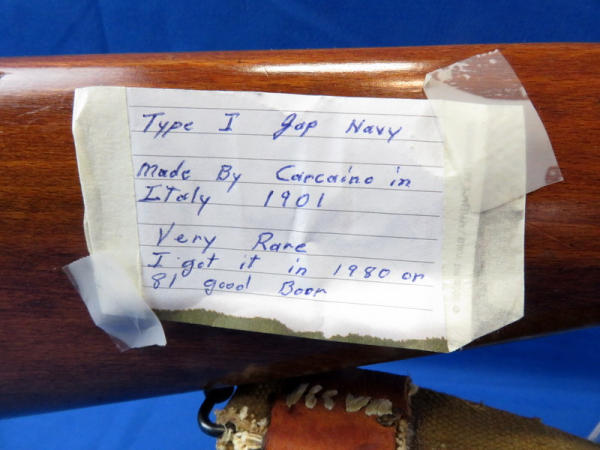 Type I Jap Navy
Made By Carcaino in
Italy 1901
Very Rare
I got it in 1980 or
81 good Boor